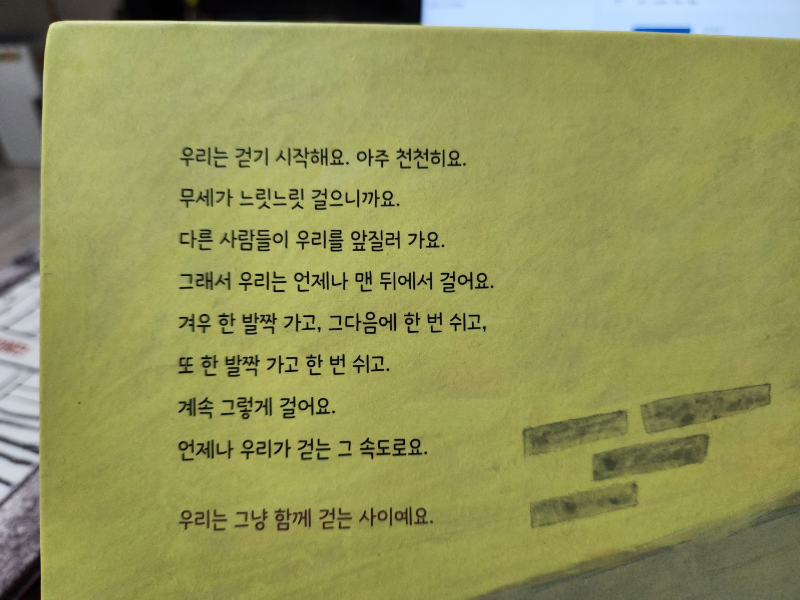 우리는 걷기 시작해요. 아주 천천히요.
무세가 느릿느릿 걸으니까요.
다른 사람들이 우리를 앞질러 가요.
그래서 우리는 언제나 맨 뒤에서 걸어요.
겨우 한 발짝 가고, 그다음에 한 번 쉬고,
또 한 발짝 가고 한 번 쉬고.
계속 그렇게 걸어요.
언제나 우리가 걷는 그 속도로요.
우리는 그냥 함께 걷는 사이예요.